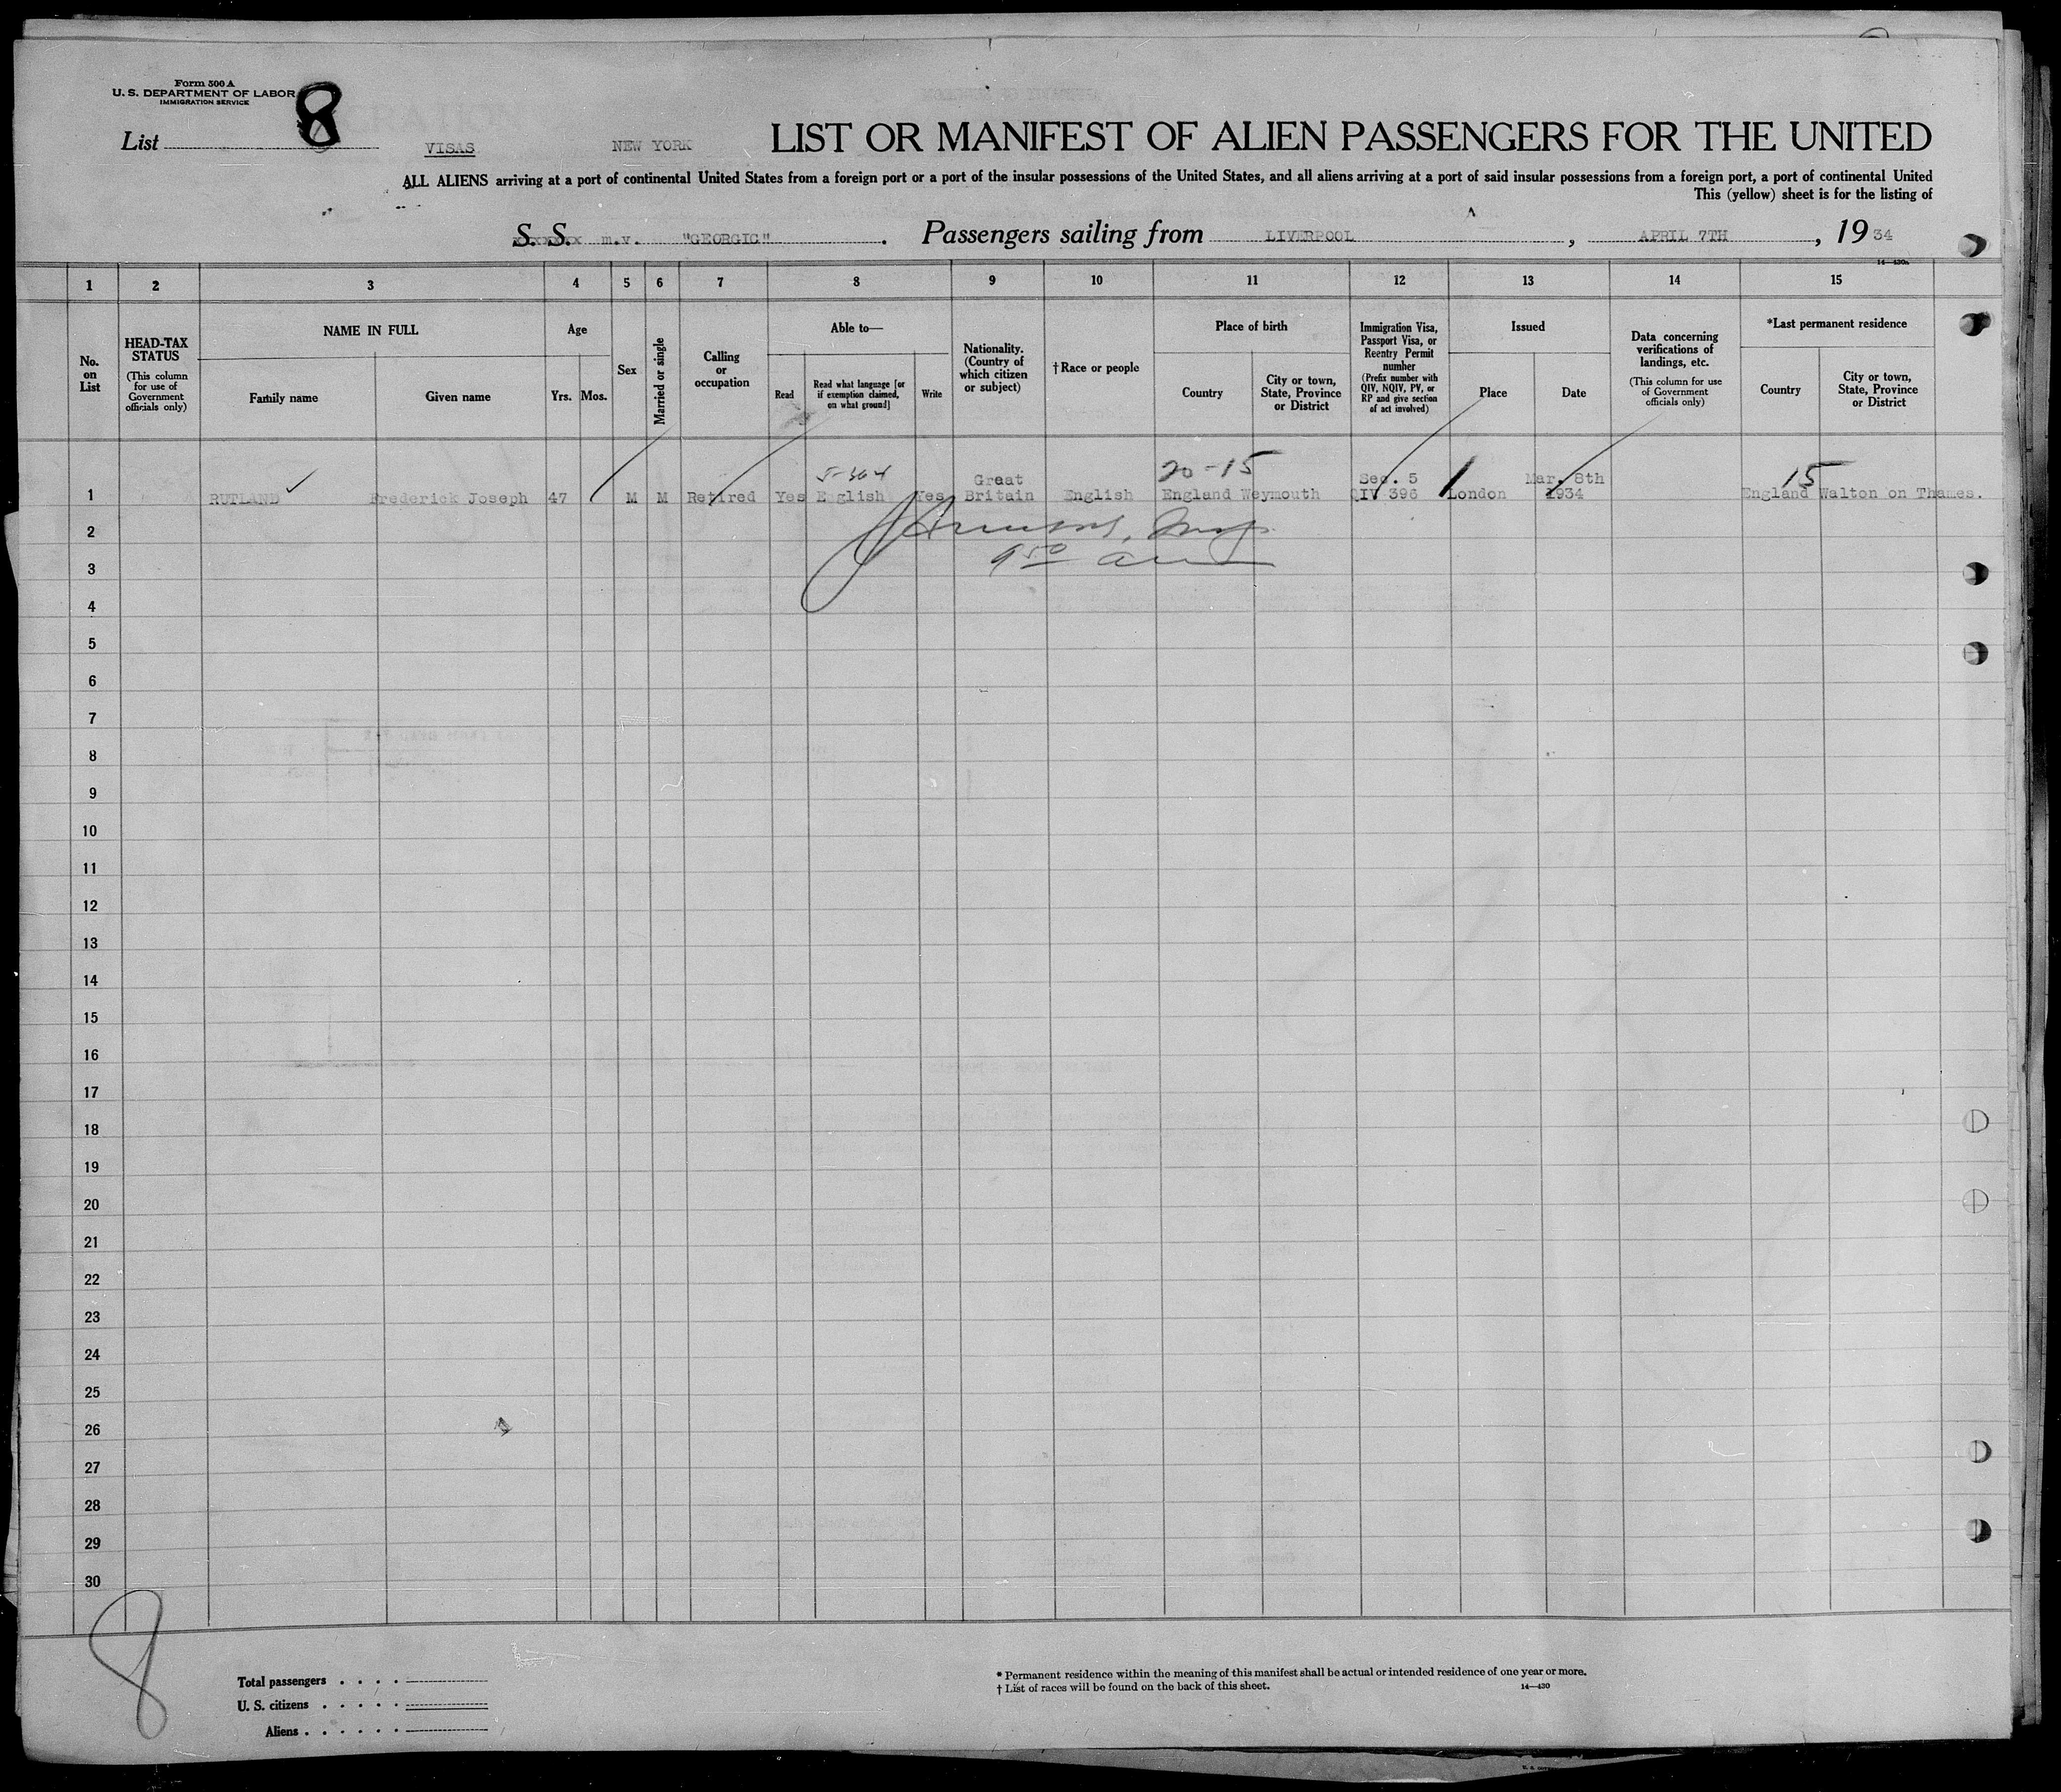 Form 500 A
U. S. DEPARTMENT OF LABOR
IMMIGRATION SERVICE
List 8
VISAS NEW YORK LIST OR MANIFEST OF ALIEN PASSENGERS FOR THE UNITED
ALL ALIENS arriving at a port of continental United States from a foreign port or a port of the insular possessions of the United States, and all aliens arriving at a port of said insular possessions from a foreign port, a port of continental United
This (yellow) sheet is for the listing of
S. S. m.v. "GEORGIC" . Passengers sailing from LIVERPOOL , APRIL 7TH , 19 34
1 2 3 4 5 6 7 8 9 10 11 12 13 14 15
No. on List
HEAD-TAX STATUS
(This column for use of Government officials only)
NAME IN FULL
Family name
Given name
Age
Yrs.
Mos.
Sex
Married or single
Calling or occupation
Able to—
Read
Read what language [or if exemption claimed, on what ground]
Write
Nationality. (Country of which citizen or subject)
†Race or people
Place of birth
Country
City or town, State, Province or District
Immigration Visa, Passport Visa, or Reentry Permit number
(Prefix number with QIV, NQIV, PV, or RP and give section of act involved)
Issued
Place
Date
Data concerning verifications of landings, etc.
(This column for use of Government officials only)
*Last permanent residence
Country
City or town, State, Province or District
20-15 15
Great Sec. 5 Mar. 8th
1 RUTLAND Frederick Joseph 47 M M Retired Yes English Yes Britain English England Weymouth QIV 396 London 1934 England Walton on Thames.
2
3
4
5
6
7
8
9
10
11
12
13
14
15
16
17
18
19
20
21
22
23
24
25
26
27
28
29
30
8
Total passengers . . . .
U. S. citizens . . . . .
Aliens . . . . . .
* Permanent residence within the meaning of this manifest shall be actual or intended residence of one year or more.
† List of races will be found on the back of this sheet.
14—430